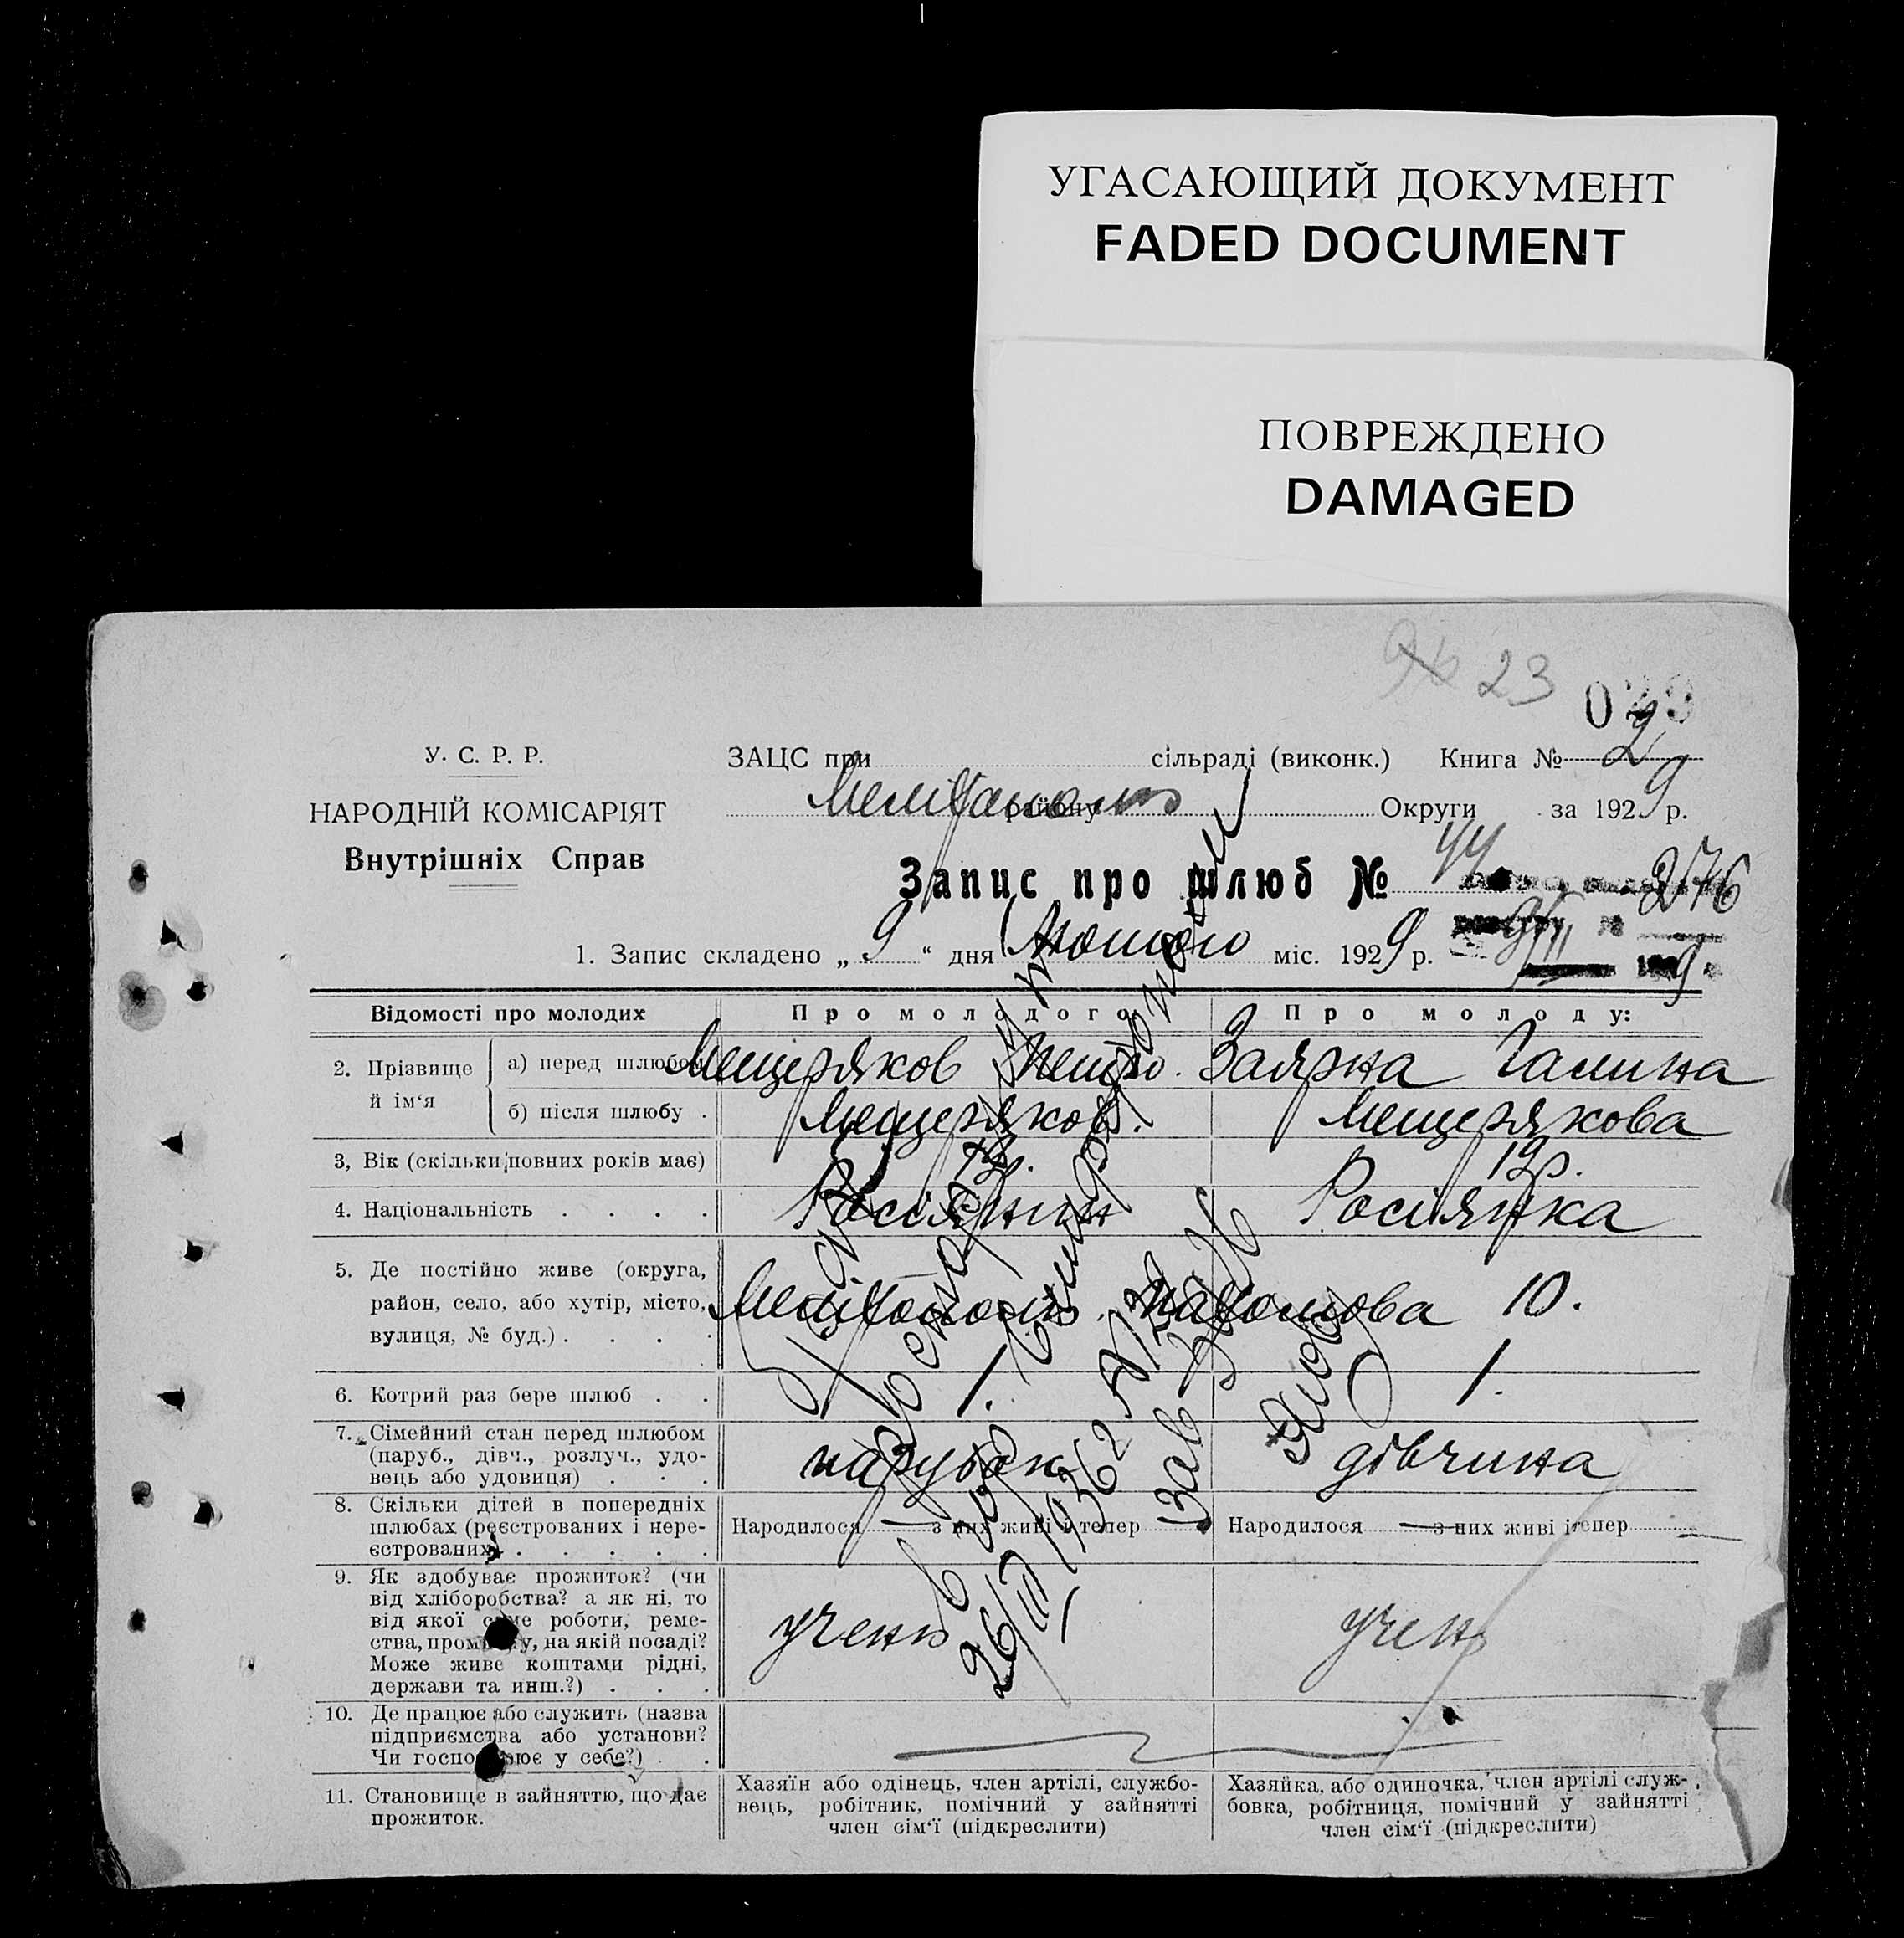 УГАСАЮЩИЙ ДОКУМЕНТ
FADED DOCUMENT
ПОВРЕЖДЕНО
DAMAGED
№ 23
У. С. Р. Р.
НАРОДНІЙ КОМІСАРІЯТ
Внутрішніх Справ
ЗАЦС при сільраді (виконк.) Книга № 2
Мелітополь району Округи за 1929 р.
Запис про шлюб № 44
276
1. Запис складено „ 9 “ дня Лютого міс. 1929 р.
Відомості про молодих
Про молодого:
Про молоду:
2. Прізвище й ім‘я
а) перед шлюбом
Мещеряков Петро.
Заярна Галина
б) після шлюбу .
Мещеряков.
Мещерякова
3, Вік (скільки повних років має)
19р.
4. Національність . . . .
Росіянин
Росіянка
5. Де постійно живе (округа,
район, село, або хутір, місто,
вулиця, № буд.) . . . .
Мелітополь. 10.
6. Котрий раз бере шлюб . .
1.
1.
7. Сімейний стан перед шлюбом
(паруб., дівч., розлуч., удо-
вець або удовиця) . . .
парубок
дівчина
8. Скільки дітей в попередніх
шлюбах (реєстрованих і нере-
єстрованих) . . . . .
Народилося з них живі і тепер
Народилося — з них живі і тепер —
9. Як здобуває прожиток? (чи
від хліборобства? а як ні, то
від якої саме роботи, реме-
ства, промислу, на якій посаді?
Може живе коштами рідні,
держави та инш.?) . . .
учень
учень
10. Де працює або служить (назва
підприємства або установи?
Чи господарює у себе?) . .
11. Становище в зайняттю, що дає
прожиток.
Хазяїн або одінець, член артілі, службо-
вець, робітник, помічний у зайнятті
член сім‘ї (підкреслити)
Хазяйка, або одиночка, член артілі служ-
бовка, робітниця, помічний у зайнятті
член сім‘ї (підкреслити)
26/III 1936
Зав